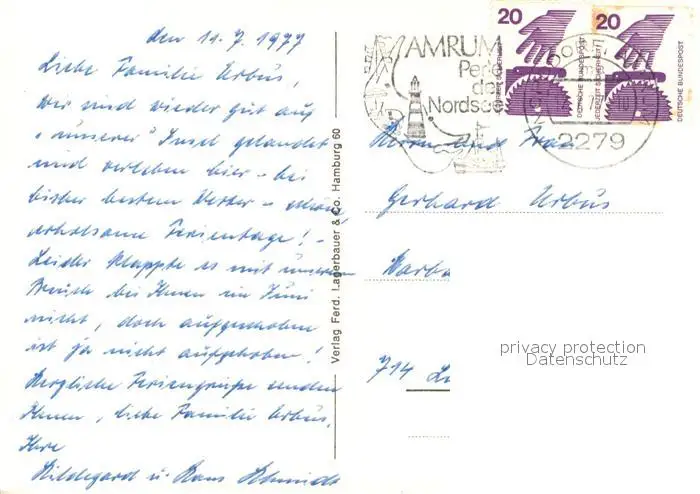 den 11.7.1977
Liebe Familie Urbus,
wir sind wieder gut auf
"unserer" Insel gelandet
und verleben hier - bei
bisher bestem Wetter - schöne
erholsame Ferientage! -
Leider klappte es mit unserem
Besuch bei Ihnen im Juni
nicht, doch aufgeschoben
ist ja nicht aufgehoben!
Herzliche Feriengrüße senden
Ihnen, liebe Familie Urbus,
Ihre
Hildegard u. Hans Schmidt
Verlag Ferd. Lagerbauer & Co. Hamburg 60
AMRUM
Perle
der
Nordsee
20
20
DEUTSCHE BUNDESPOST
JEDERZEIT SICHERHEIT
DEUTSCHE BUNDESPOST
2279
Herrn und Frau
Gerhard Urbus
714
privacy protection
Datenschutz